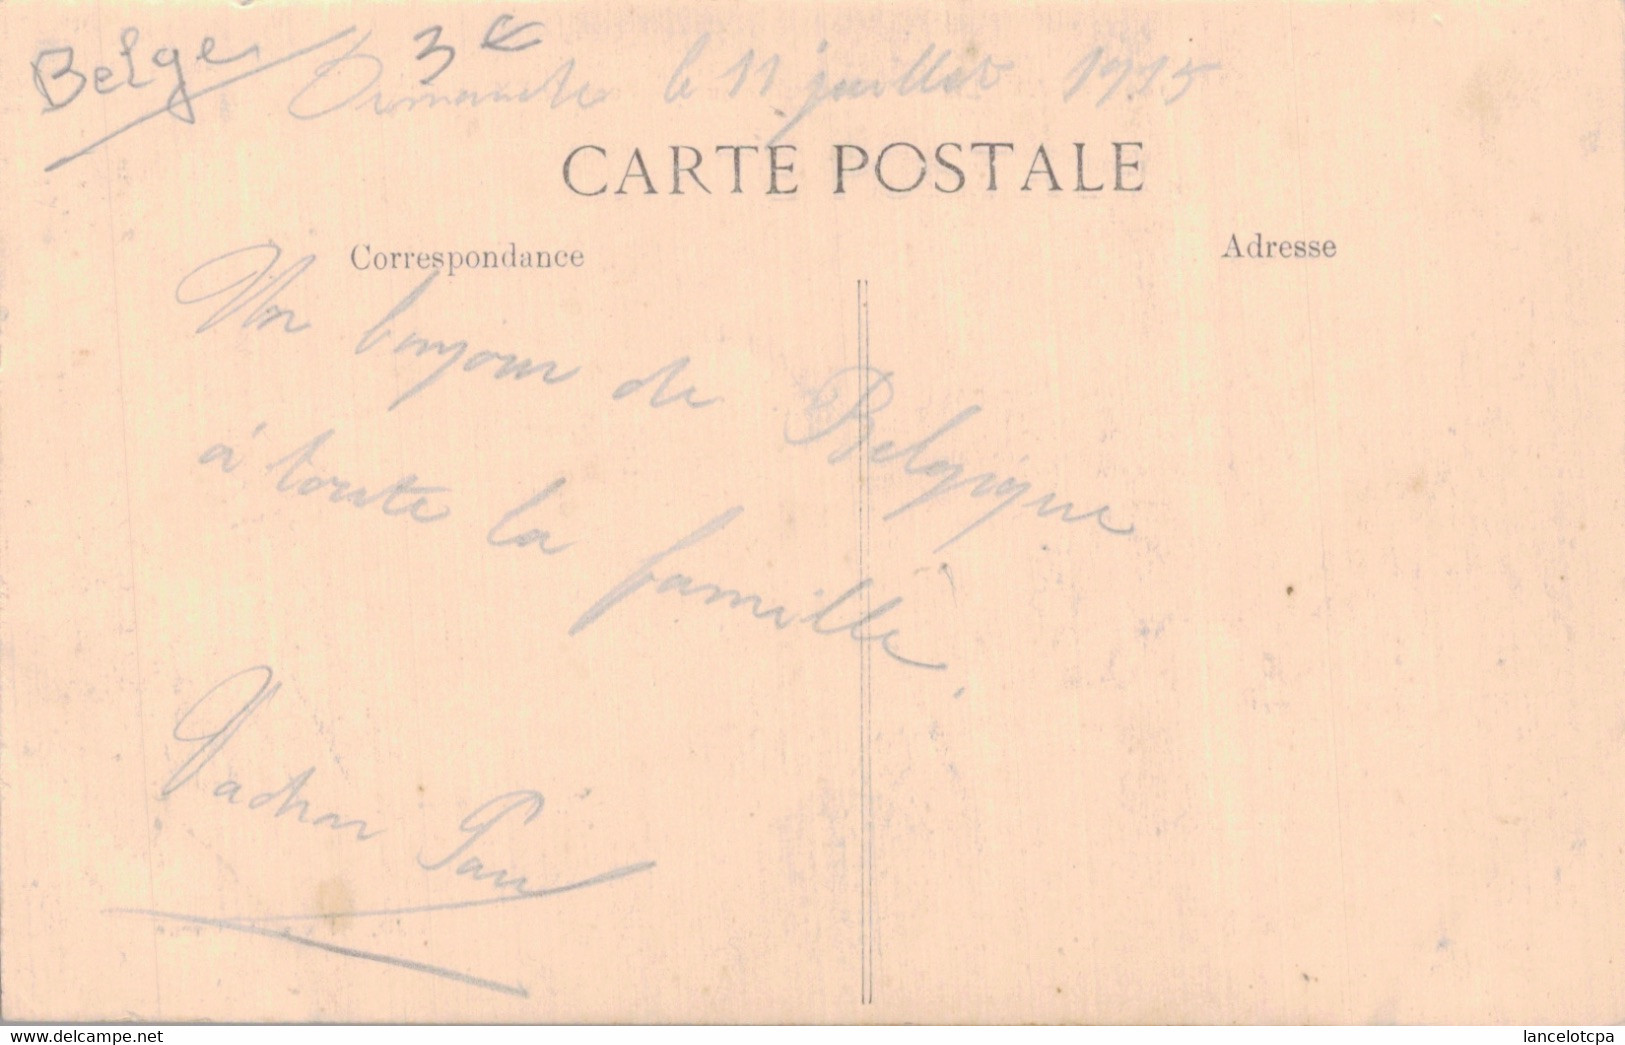 Belge 3 €
Dimanche le 11 juillet 1915
CARTE POSTALE
Correspondance
Adresse
Un bonjour de Belgique
à toute la famille.
www.delcampe.net
lancelotcpa